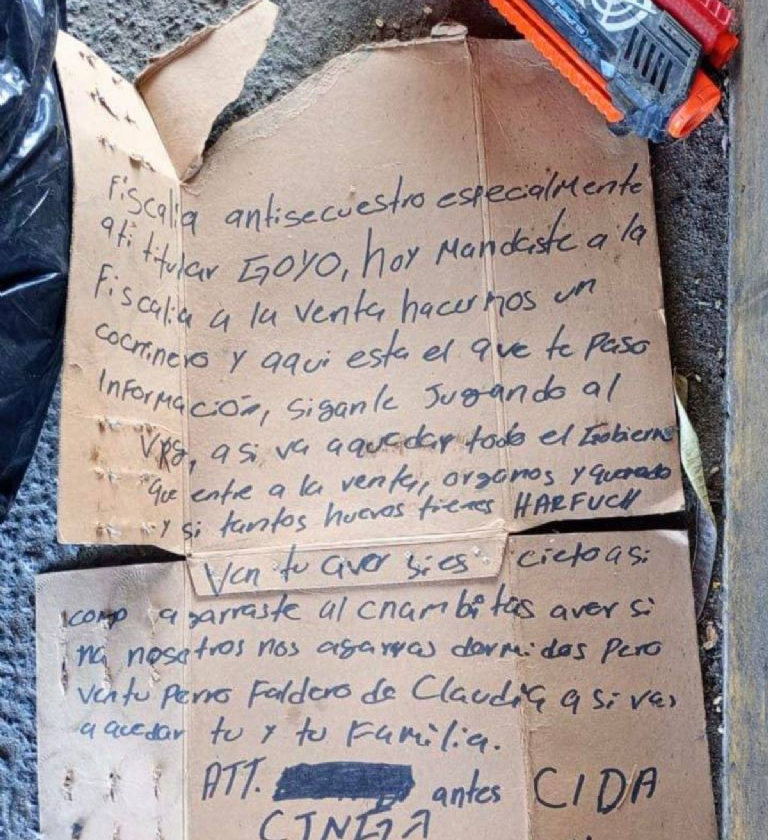 Fiscalia antisecuestro especialmente
ati titular GOYO, hoy Mandaste a la
Fiscalia a la venta hacernos un
cocninero y aqui esta el que te Paso
InFormación, siganle Jugando al
VRg, a si va aquedar todo el Gobierno
que entre a la venta, organos y quemado
y si tantos huevos tienes HARFUCH
Ven tu aver sies cieto asi
como agarraste al cnambitas aver si
na nosotros nos agarras dormidos Pero
ventu Perro Faldero de Claudia a si vas
a quedar tu y tu Familia.
ATT. antes CIDA